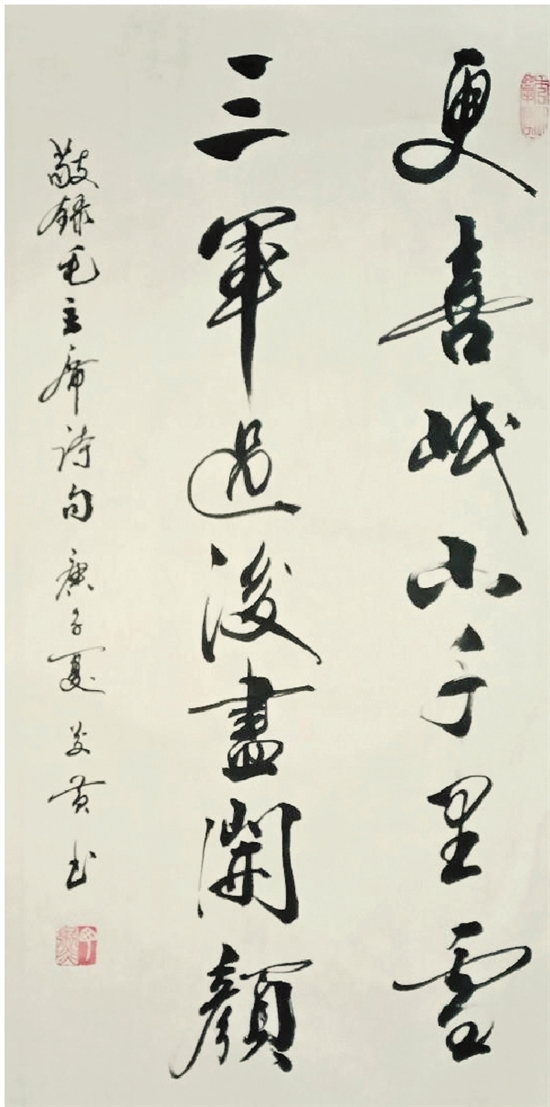 更喜岷山千里雪
三軍過後盡開顏
敬錄毛主席詩句 庚子夏 黄书